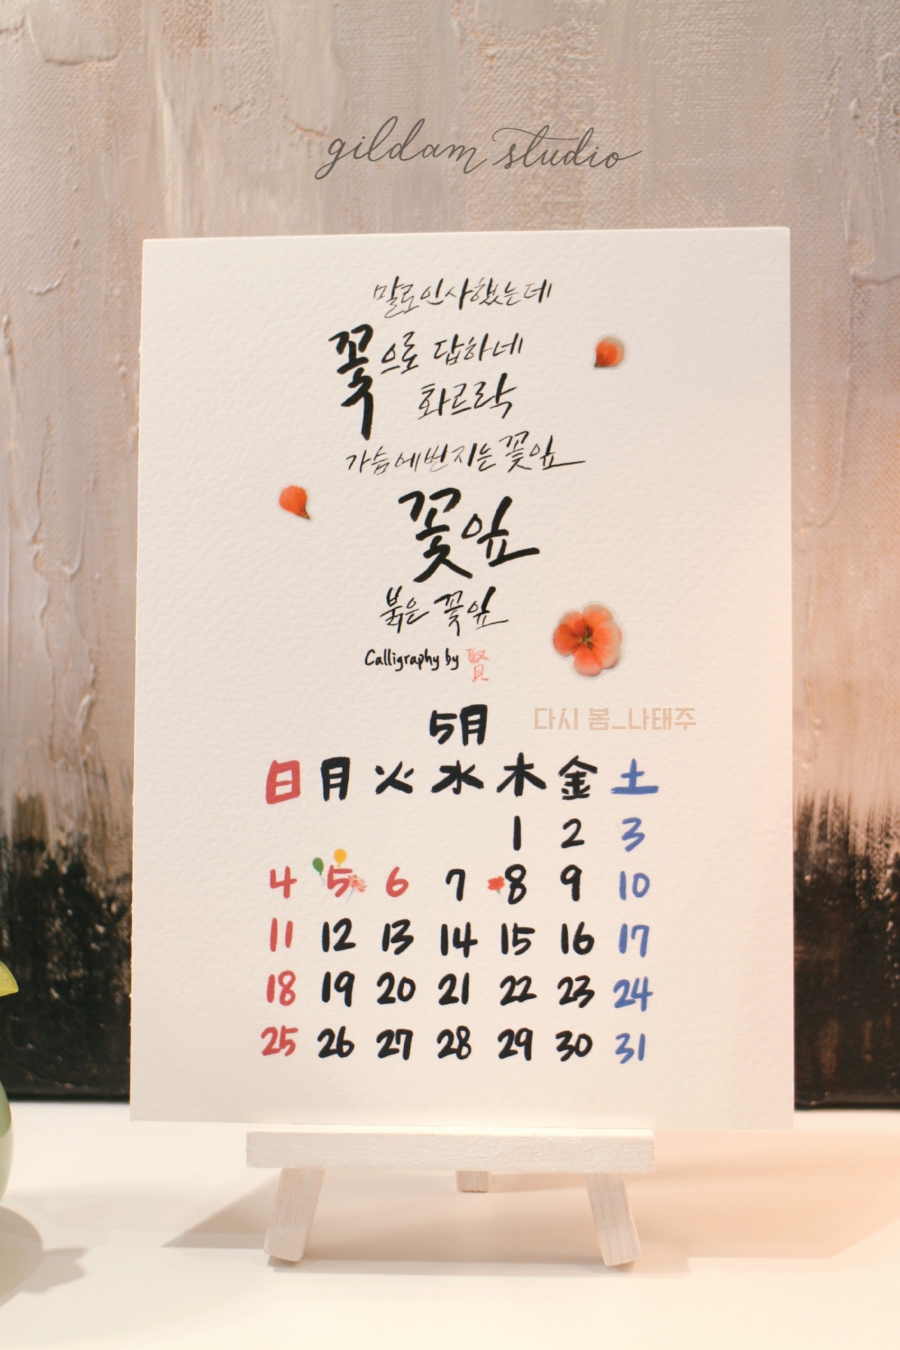 gildam studio
말로 인사했는데
꽃으로 답하네
화르락
가슴에 번지는 꽃잎
꽃잎
붉은 꽃잎
Calligraphy by 賢
5月
다시 봄_나태주
日 月 火 水 木 金 土
1 2 3
4 5 6 7 8 9 10
11 12 13 14 15 16 17
18 19 20 21 22 23 24
25 26 27 28 29 30 31